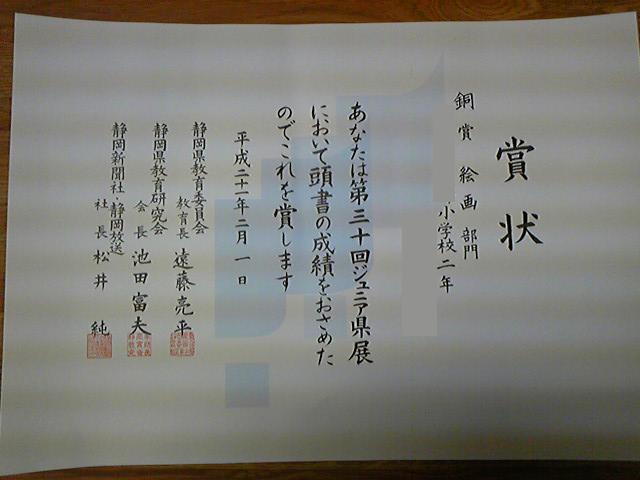 賞状
銅賞 絵画部門
小学校二年
あなたは第三十回ジュニア県展
において頭書の成績をおさめた
のでこれを賞します
平成二十一年二月一日
静岡県教育委員会
教育長 遠藤亮平
静岡県教育研究会
会長 池田富夫
静岡新聞社・静岡放送
社長 松井純